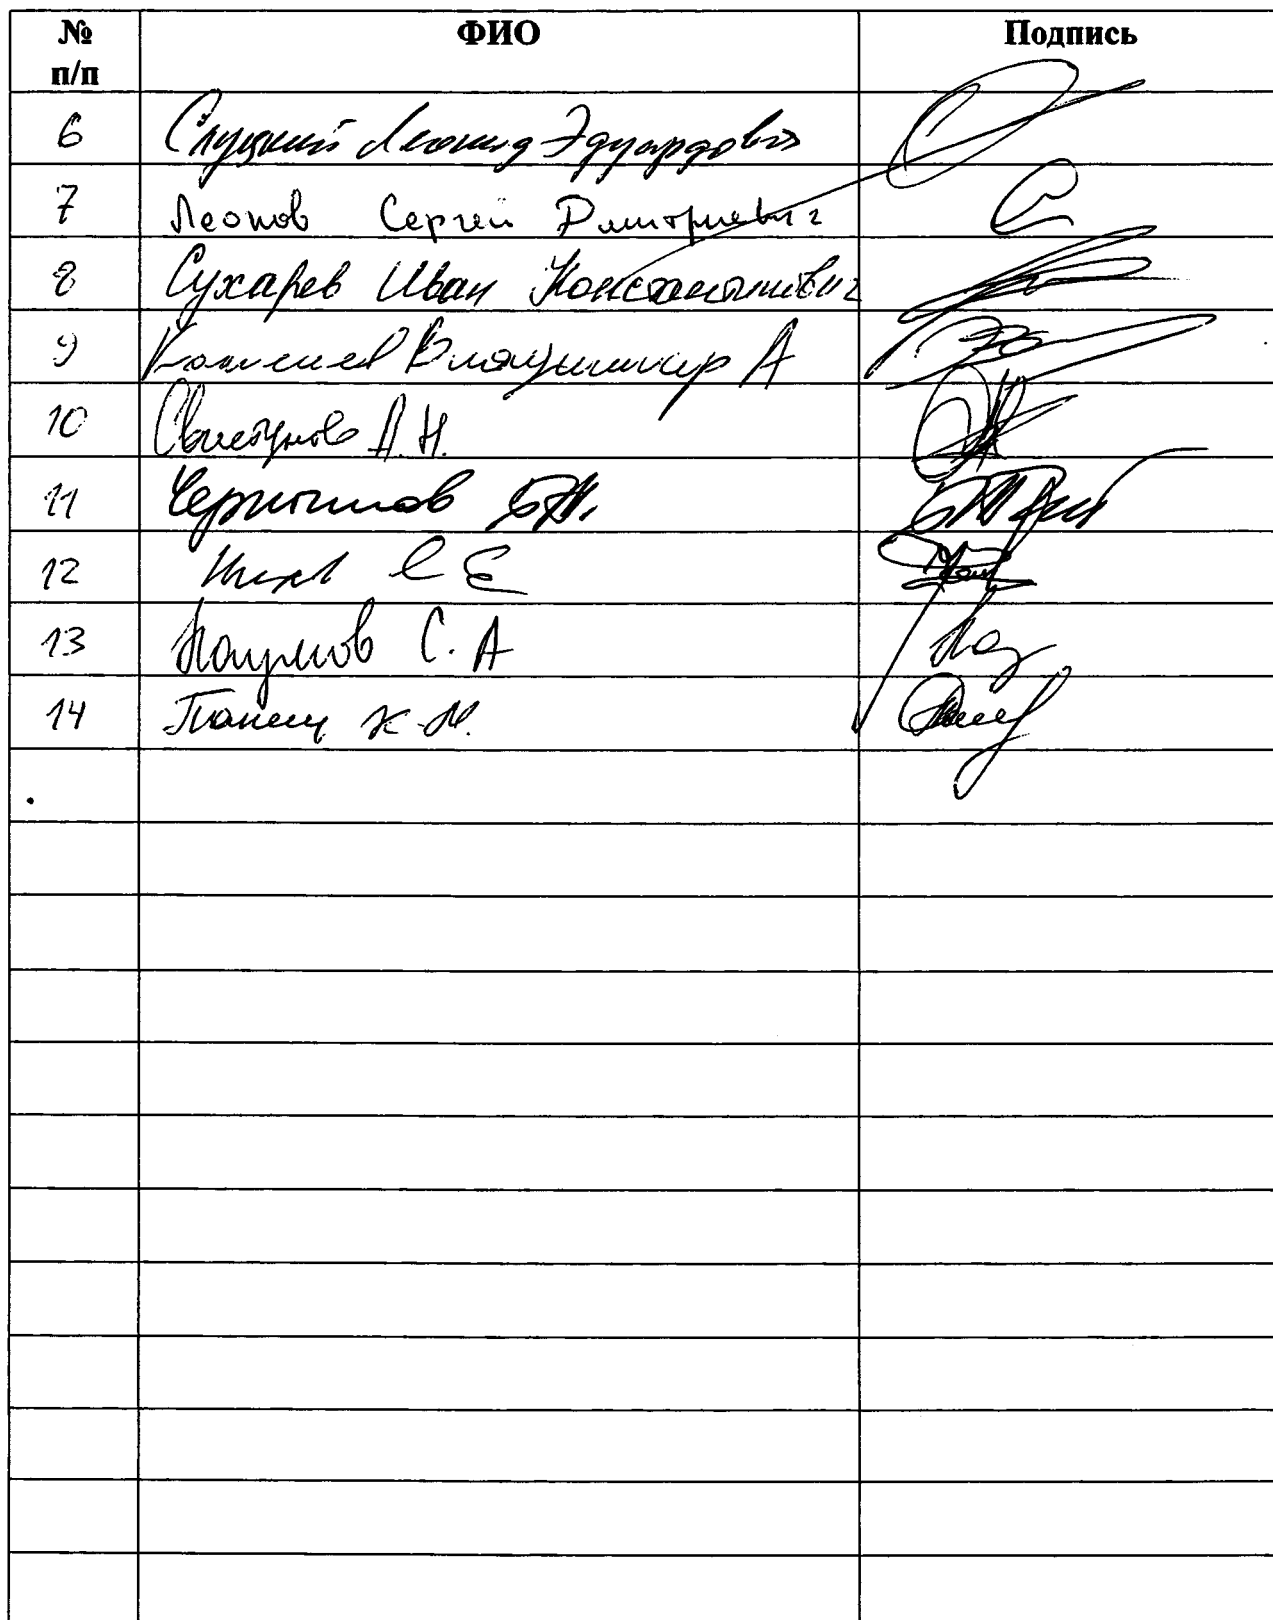 № п/п ФИО Подпись
6 Слуцкий Леонид Эдуардович
7 Леонов Сергей Дмитриевич
8 Сухарев Иван Константинович
9 Владимир А
10 Свистунов А.Н.
11 Чернышов Б.
12 С Е
13 Наумов С. А
14 Панеш К.М.